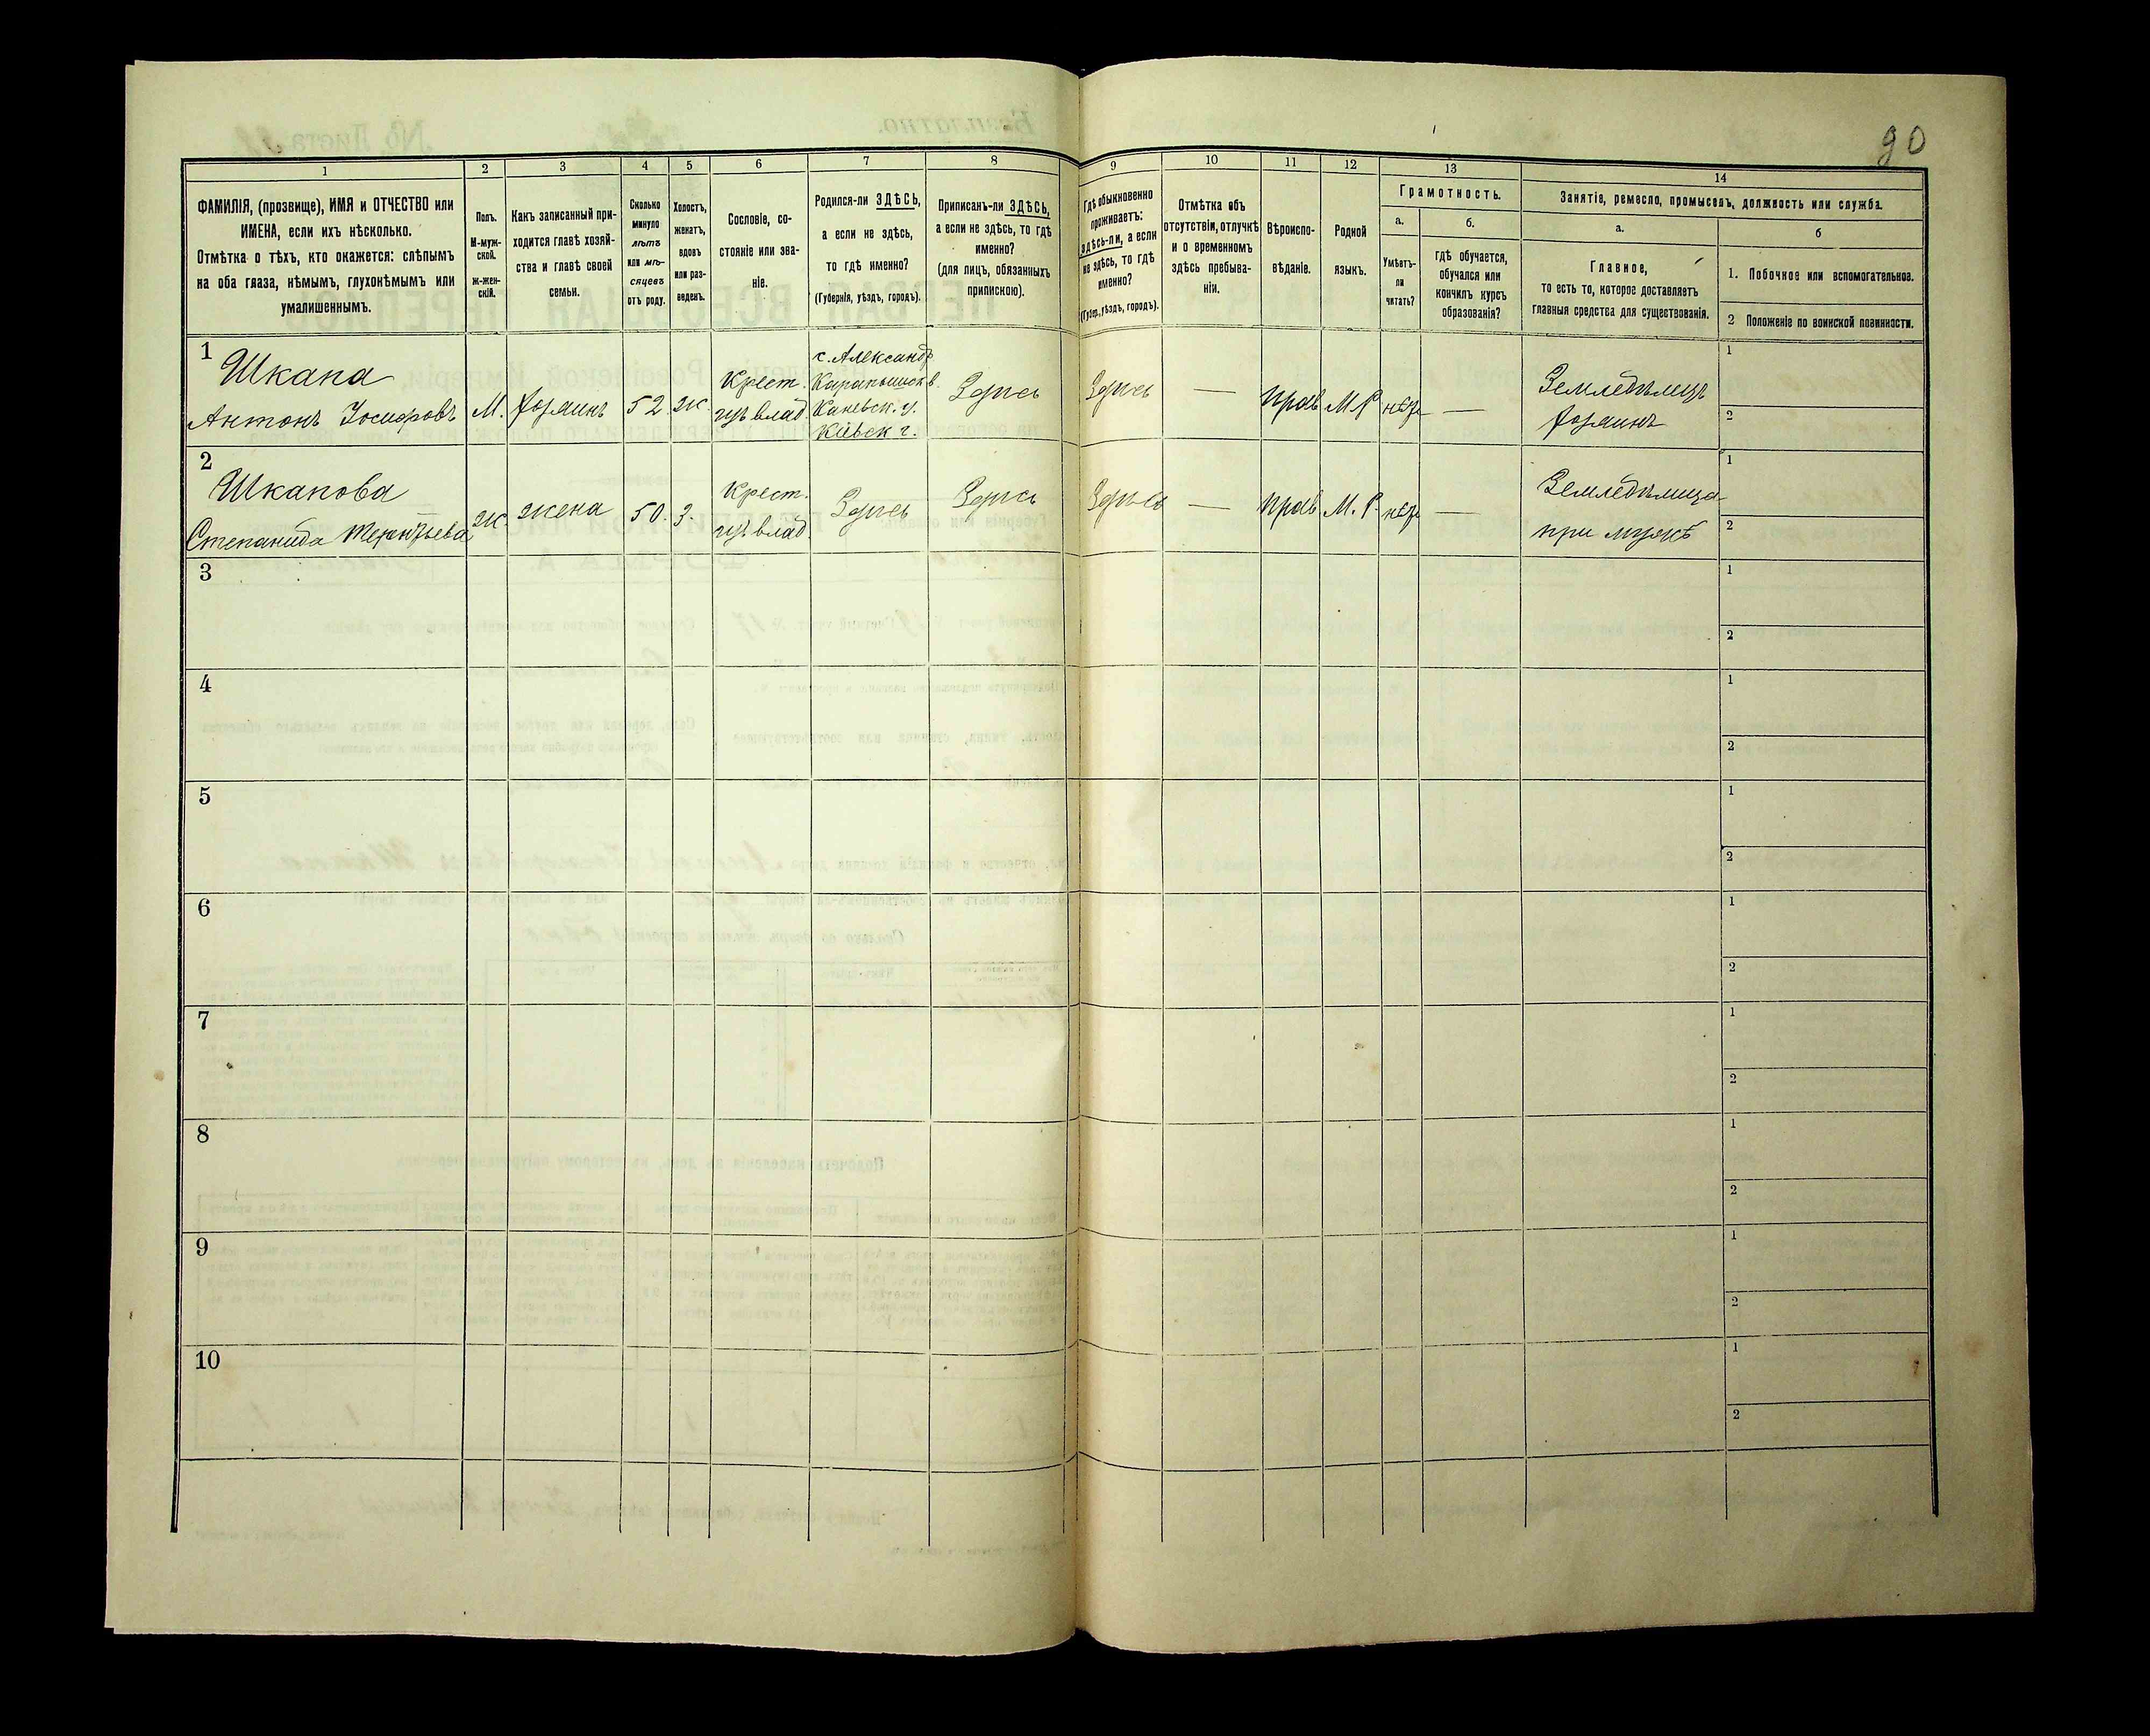 90
1
2
3
4
5
6
7
8
9
10
11
12
13
14
ФАМИЛІЯ, (прозвище), ИМЯ и ОТЧЕСТВО или
ИМЕНА, если ихъ нѣсколько.
Отмѣтка о тѣхъ, кто окажется: слѣпымъ
на оба глаза, нѣмымъ, глухонѣмымъ или
умалишеннымъ.
Полъ.
М-муж-
ской.
Ж-жен-
скій.
Какъ записанный при-
ходится главѣ хозяй-
ства и главѣ своей
семьи.
Сколько
минуло
лѣтъ
или мѣ-
сяцевъ
отъ роду.
Холостъ,
женатъ,
вдовъ
или раз-
веденъ.
Сословіе, со-
стояніе или зва-
ніе.
Родился-ли ЗДѢСЬ,
а если не здѣсь,
то гдѣ именно?
(Губернія, уѣздъ, городъ).
Приписанъ-ли ЗДѢСЬ,
а если не здѣсь, то гдѣ
именно?
(для лицъ, обязанныхъ
припискою).
Гдѣ обыкновенно
проживаетъ:
здѣсь-ли, а если
не здѣсь, то гдѣ
именно?
(Губер., уѣздъ, городъ).
Отмѣтка объ
отсутствіи, отлучкѣ
и о временномъ
здѣсь пребыва-
ніи.
Вѣроиспо-
вѣданіе.
Родной
языкъ.
Грамотность.
а.
Умѣетъ-
ли
читать?
б.
гдѣ обучается,
обучался или
кончилъ курсъ
образованія?
Занятіе, ремесло, промыселъ, должность или служба.
а.
Главное,
то есть то, которое доставляетъ
главныя средства для существованія.
б
1. Побочное или вспомогательное.
2 Положеніе по воинской повинности.
1
Шкапа
Антонъ Іосифовъ
М.
хозяинъ
52
ж.
Крест.
изъ влад.
с. Александр
Карапышов.
Каневск. у.
Кіевск г.
Здѣсь
Здѣсь
—
прав
М Р
нѣтъ
—
Земледѣлецъ
хозяинъ
1
2
2
Шкапова
Степанида Терентьева
Ж.
жена
50
З.
Крест.
изъ влад.
Здѣсь
Здѣсь
Здѣсь
—
прав
М. Р.
нѣтъ
—
Земледѣлица
при мужѣ
1
2
3
1
2
4
1
2
5
1
2
6
1
2
7
1
2
8
1
2
9
1
2
10
1
2